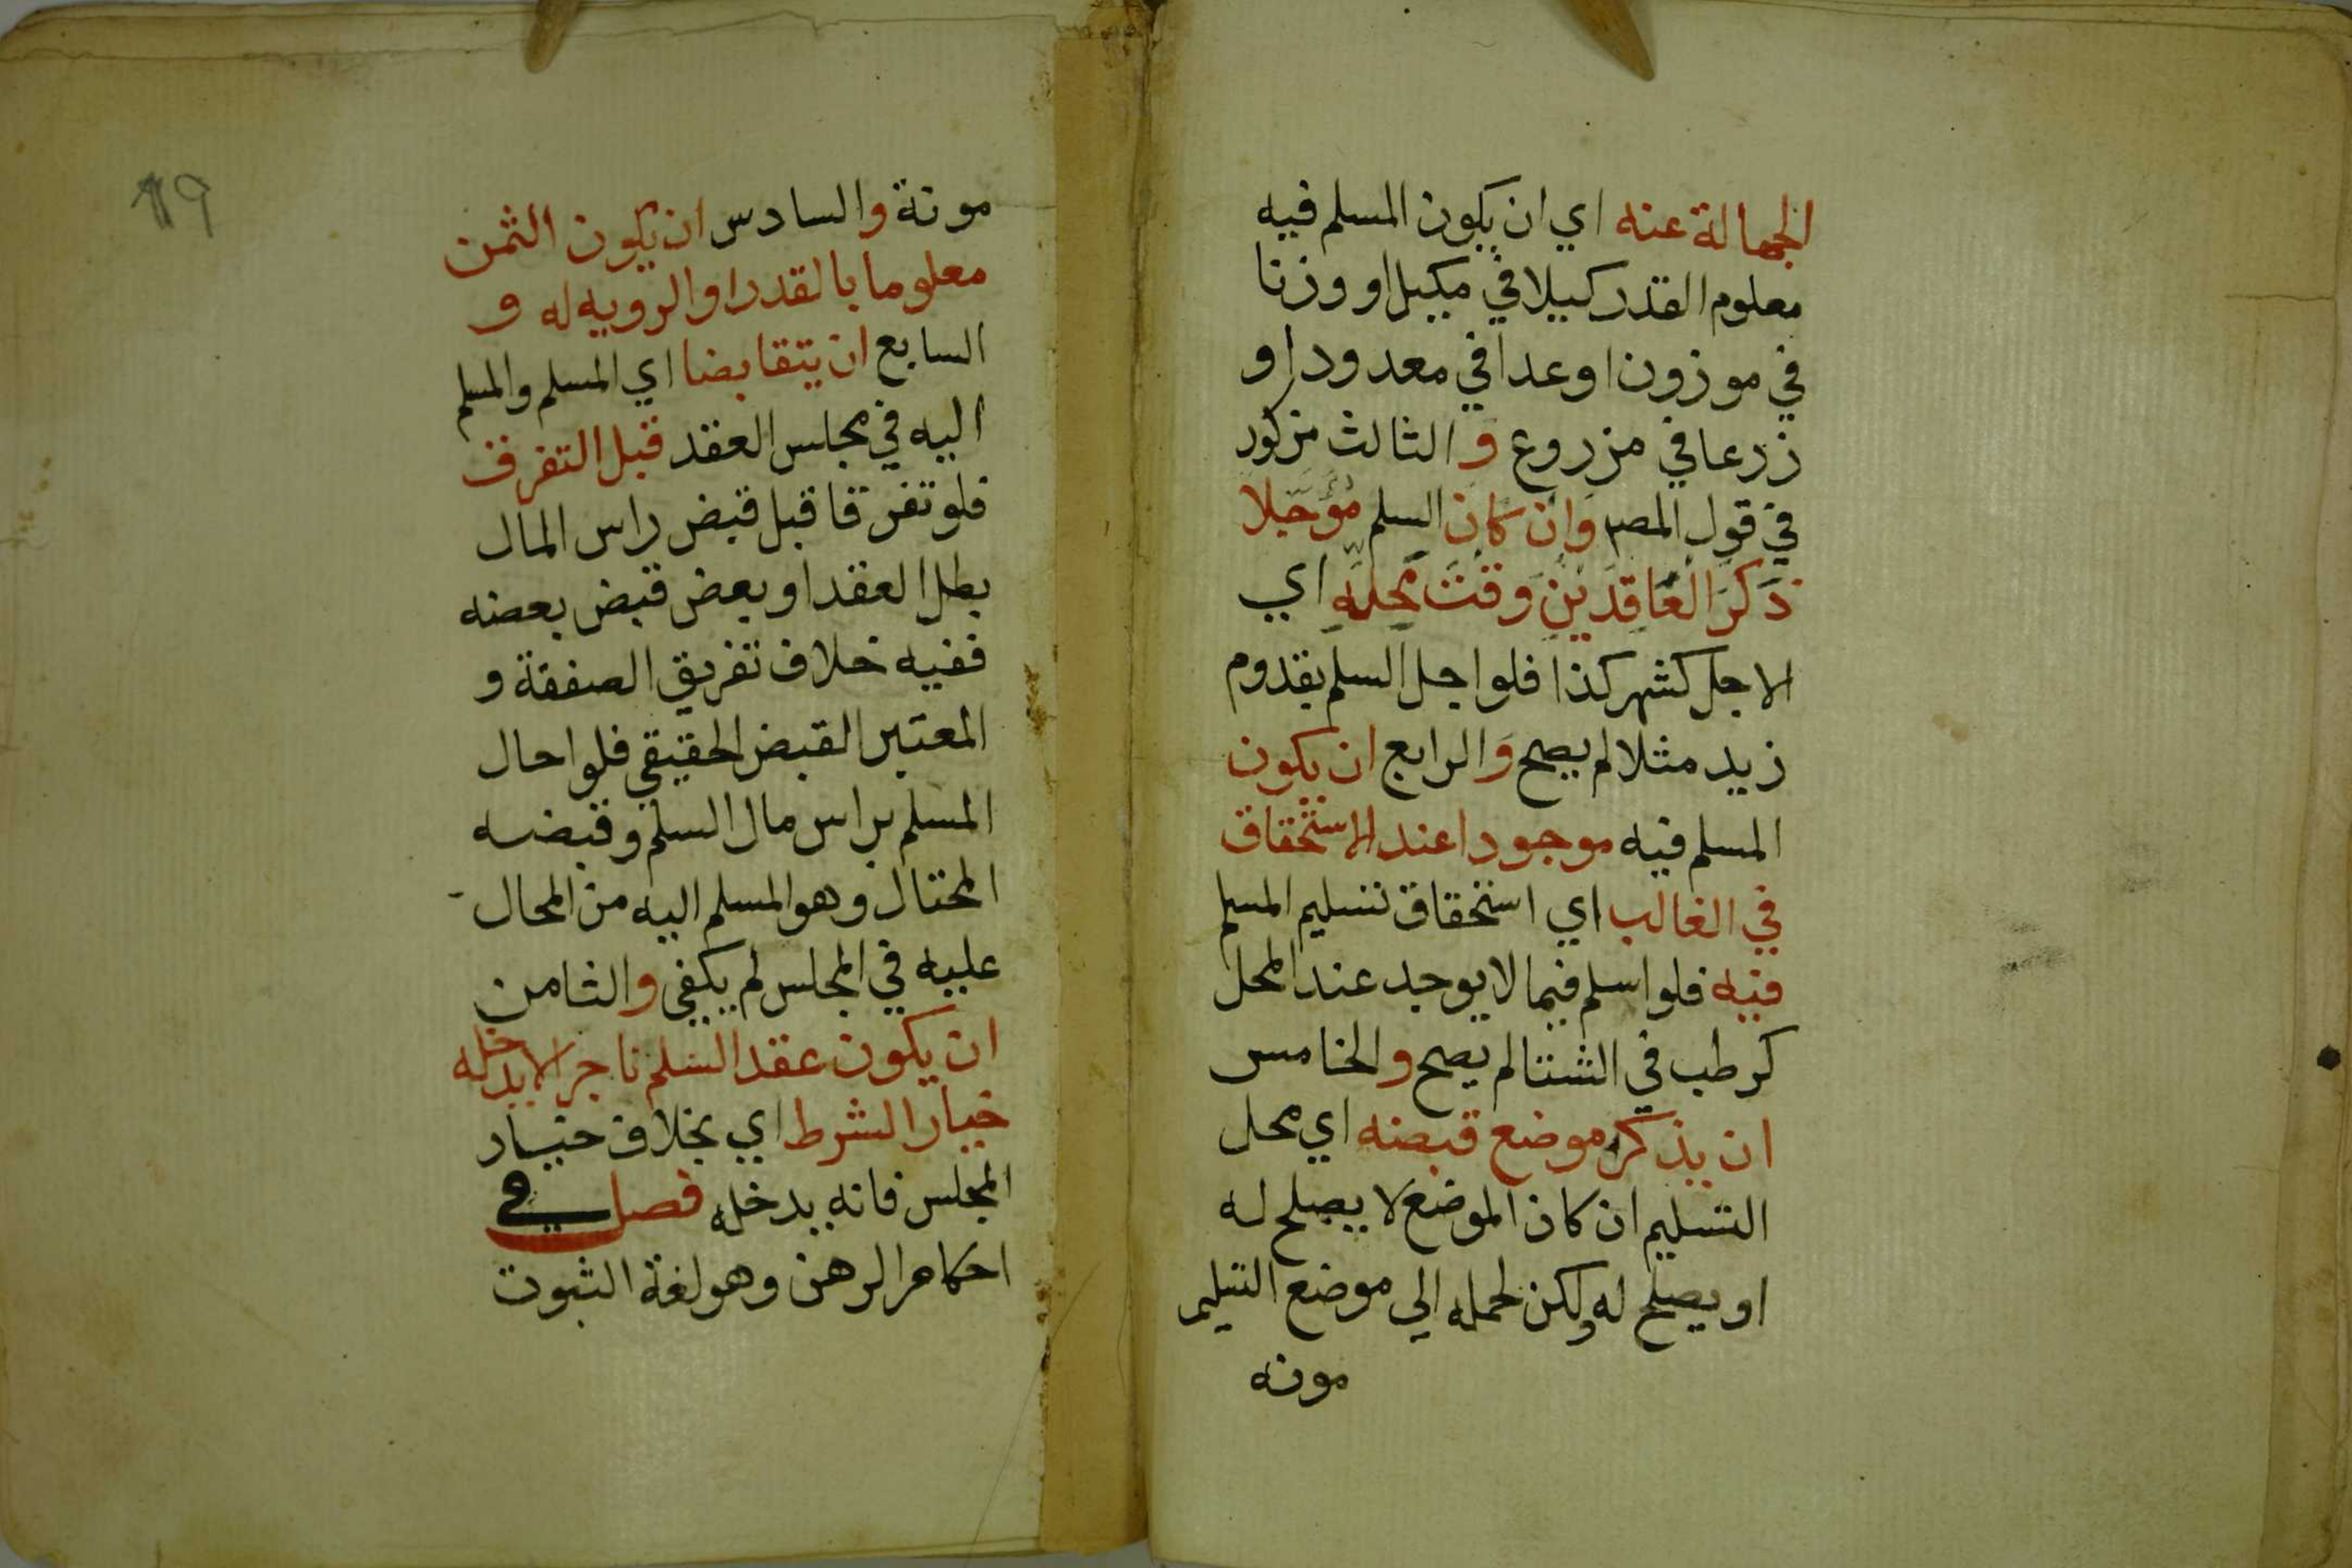 الجهالة عنه اي ان يكون المسلم فيه
معلوم القدر كيلا في مكيل او وزنا
في موزون او عدا في معدود او
زرعا في مزروع و الثالث مزكور
في قول المصر وان كان السلم مؤجلا
ذكر العاقدين وقت محله اي
الاجل كشهر كذا فلو اجل السلم بقدوم
زيد مثلا لم يصح والرابع ان يكون
المسلم فيه موجودا عند الاستحقاق
في الغالب اي استحقاق تسليم المسلم
فيه فلو اسلم فيما لا يوجد عند المحل
كرطب في الشتا لم يصح والخامس
ان يذكر موضع قبضه اي محل
التسليم ان كان الموضع لا يصلح له
او يصلح له ولكن لحمله الي موضع التسليم
مونه
مونة والسادس ان يكون الثمن
معلوما بالقدر او الرويه له و
السابع ان يتقابضا اي المسلم والمسلم
اليه في مجلس العقد قبل التفرق
فلو تفرقا قبل قبض راس المال
بطل العقد او بعض قبض بعضه
ففيه خلاف تفريق الصفقة و
المعتبر القبض الحقيقي فلو احال
المسلم براس مال السلم وقبضه
المحتال وهو المسلم اليه من المحال
عليه في المجلس لم يكفي والثامن
ان يكون عقد السلم ناجزا لا يدخله
خيار الشرط اي بخلاف خيار
المجلس فانه يدخله فصل في
احكام الرهن وهو لغة الثبوت